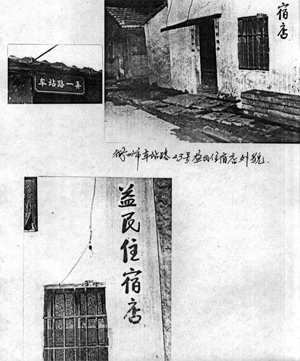 宿店
车站路一弄
州市车站路 号益民住宿店外貌
益民住宿店